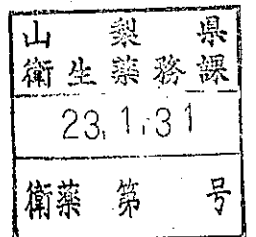 山梨県
衛生薬務課
23.1.31
衛薬第 号